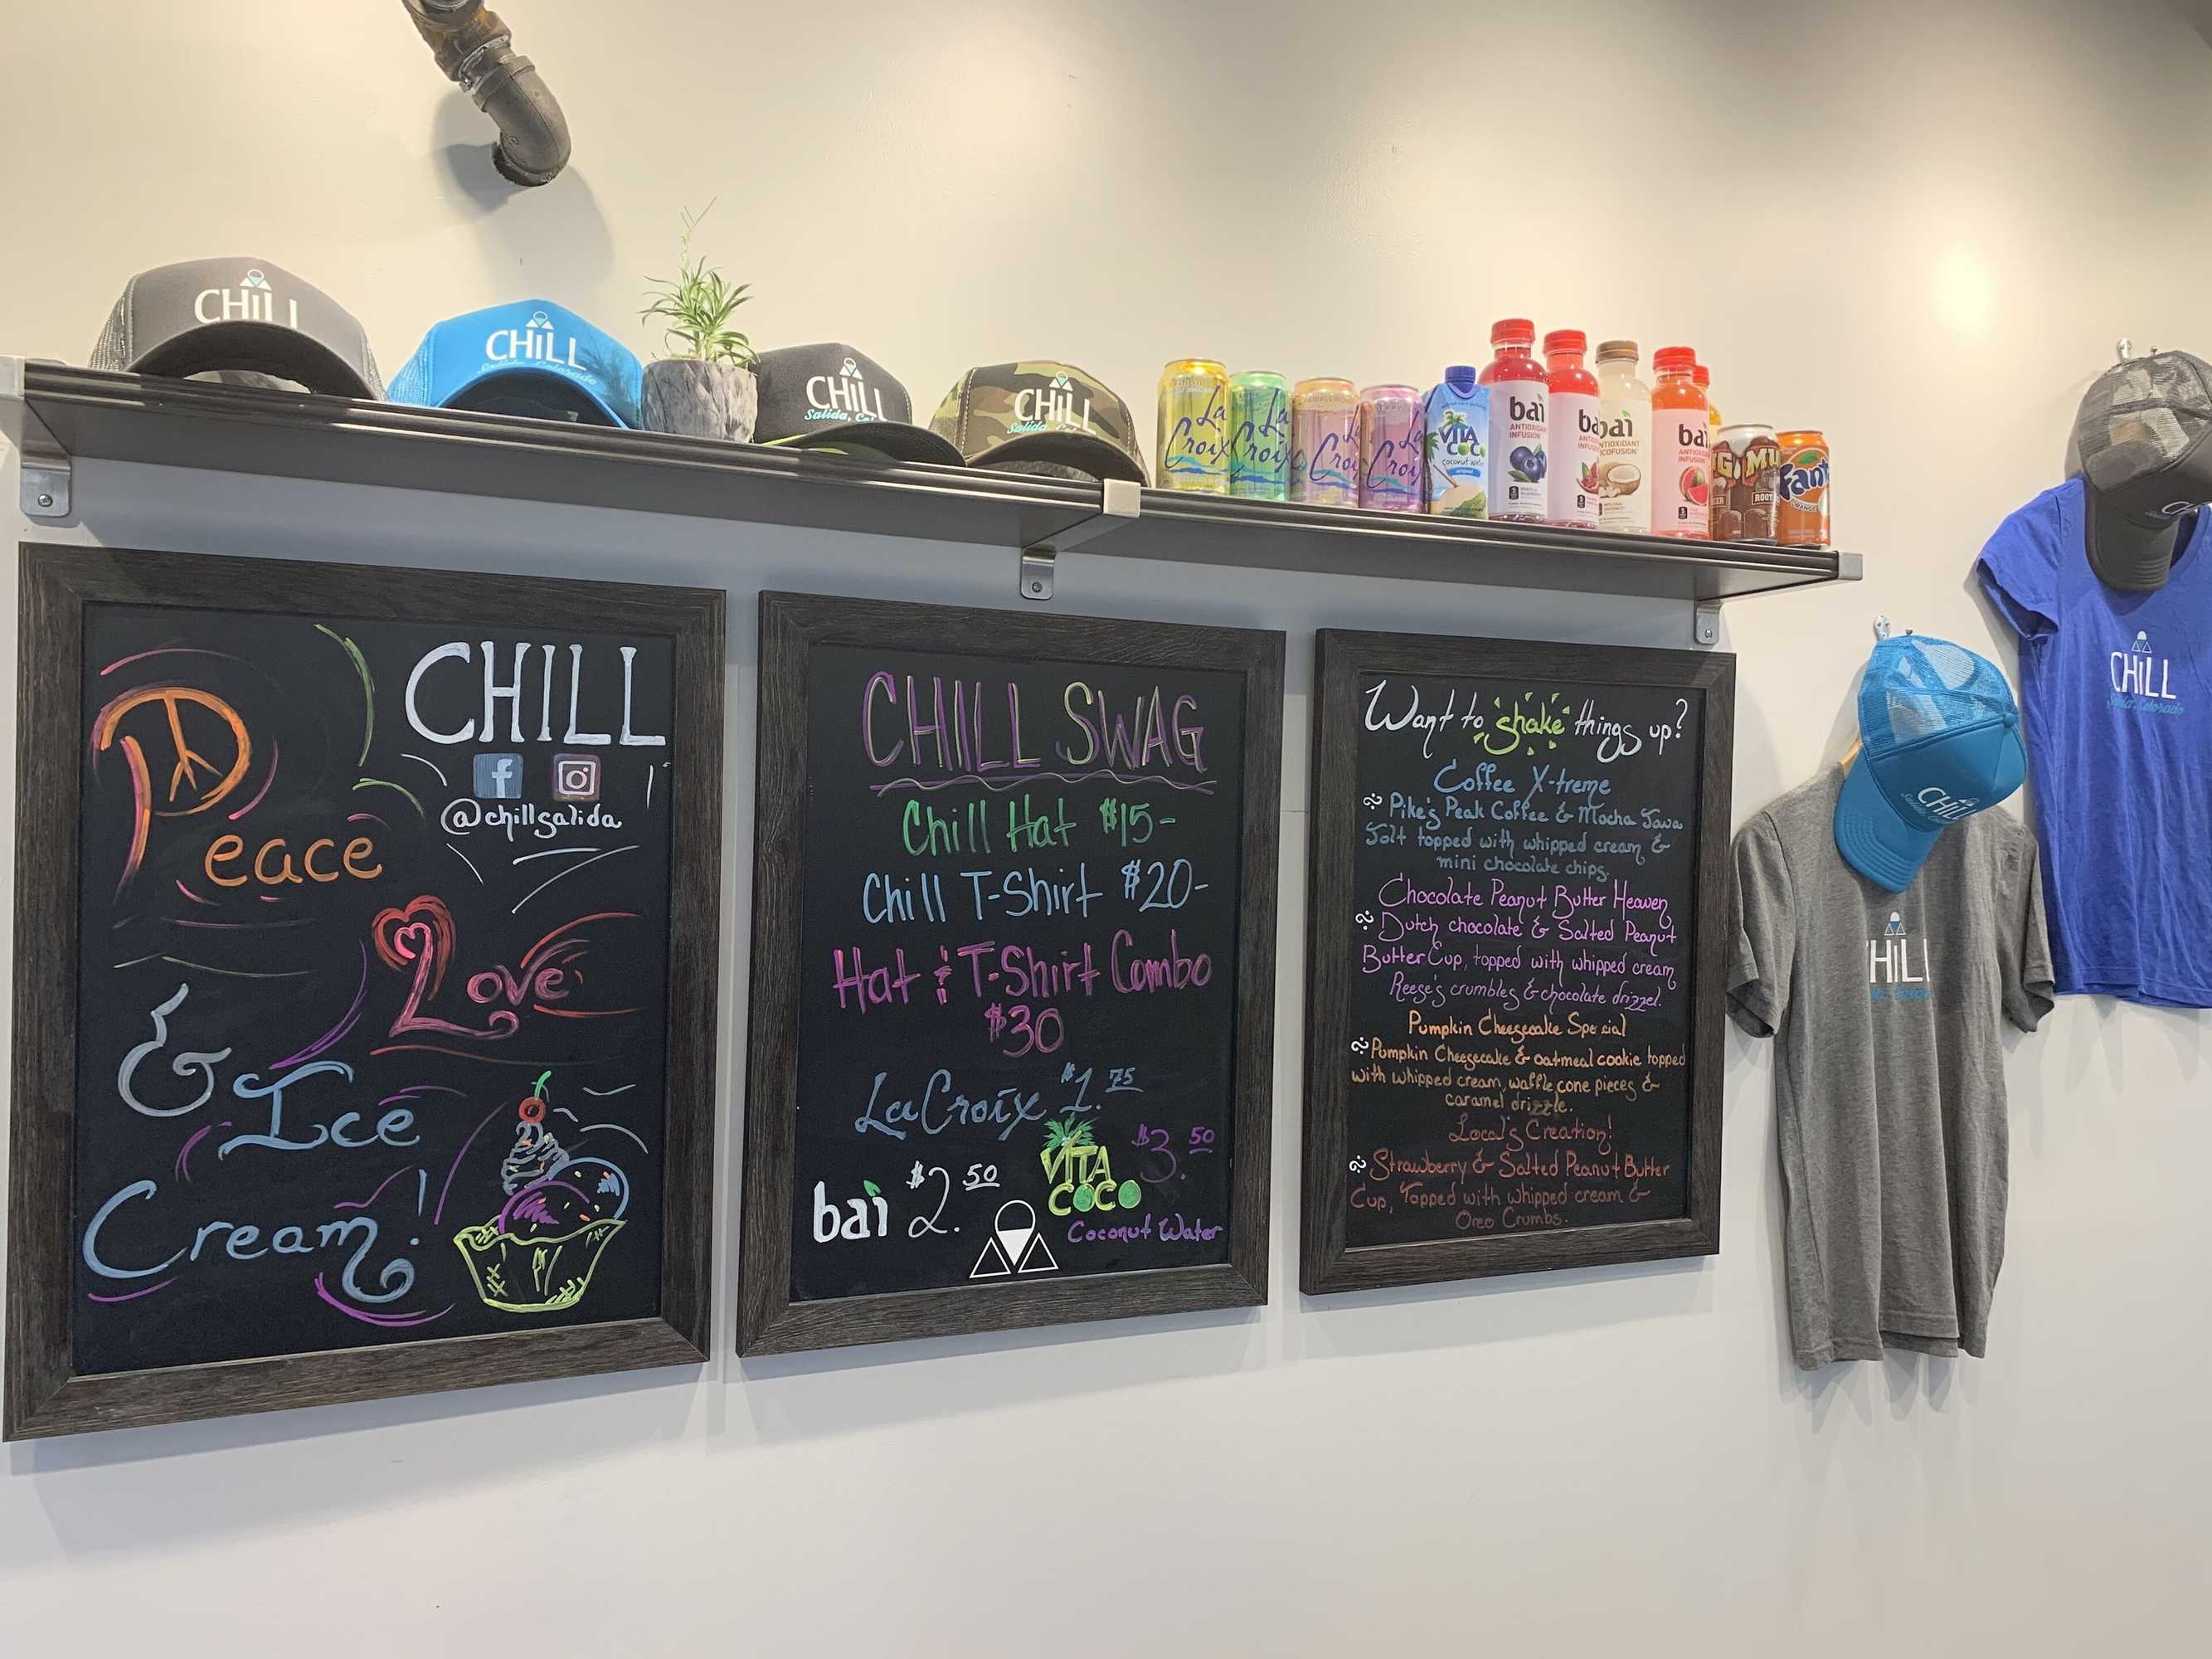 CHILL
CHILL
Salida, Colorado
CHILL
Salida, Co
CHILL
Salida
La Croix
La Croix
La Croix
La Croix
VITA COCO
coconut water
bai
ANTIOXIDANT
INFUSION
bai
bai
ANTIOXIDANT
COCOFUSION
bai
MU
ROOT
Fant
CHILL
@chillsalida
Peace
& Love
Ice
Cream!
CHILL SWAG
Chill Hat $15-
Chill T-Shirt $20-
Hat & T-Shirt Combo
$30
LaCroix $1.75
bai $2.50
VITA COCO $3.50
Coconut Water
Want to shake things up?
Coffee X-treme
Pike's Peak Coffee & Mocha Java
Jolt topped with whipped cream &
mini chocolate chips.
Chocolate Peanut Butter Heaven
Dutch chocolate & Salted Peanut
Butter Cup, topped with whipped cream
Reese's crumbles & chocolate drizzel.
Pumpkin Cheesecake Special
Pumpkin Cheesecake & oatmeal cookie topped
with whipped cream, waffle cone pieces &
caramel drizzle.
Local's Creation!
Strawberry & Salted Peanut Butter
Cup, Topped with whipped cream &
Oreo Crumbs.
CHILL
CHILL
CHILL
Salida, Colorado